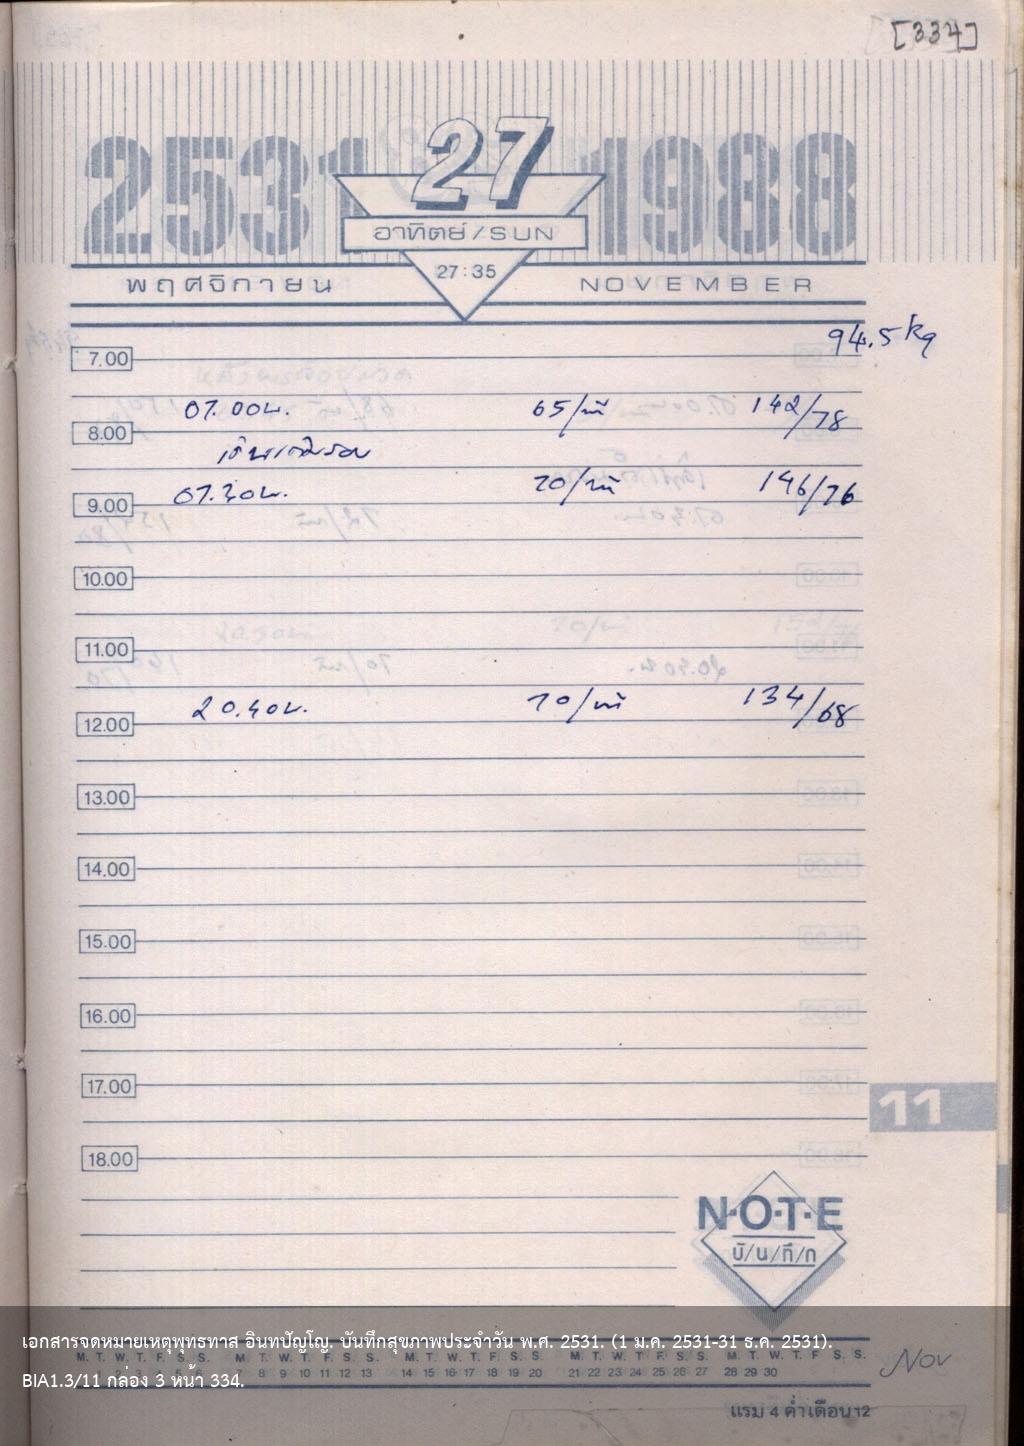 [334]
2531 27 1988
อาทิตย์/SUN
27:35
พฤศจิกายน NOVEMBER
94.5 kg
7.00
07.00น. 65/นาที 142/78
8.00
07.30น. 70/นาที 146/76
9.00
10.00
11.00
20.40น. 70/นาที 134/68
12.00
13.00
14.00
15.00
16.00
17.00
11
18.00
N·O·T·E
บั/น/ทึ/ก
เอกสารจดหมายเหตุพุทธทาส อินทปัญโญ. บันทึกสุขภาพประจำวัน พ.ศ. 2531. (1 ม.ค. 2531-31 ธ.ค. 2531).
M. T. W. T. F. S. S. M. T. W. T. F. S. S. M. T. W. T. F. S. S. M. T. W. T. F. S. S. M. T. W. T. F. S. S.
8 9 10 11 12 13 14 15 16 17 18 19 20 21 22 23 24 25 26 27 28 29 30
Nov
BIA1.3/11 กล่อง 3 หน้า 334.
แรม 4 ค่ำเดือน 12